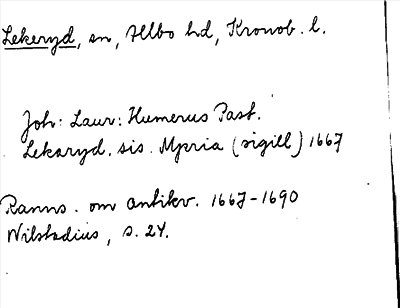 Lekeryd, sn, Allbo hd, Kronob. l.
Joh: Laur: Humerus Past.
Lekaryd. sis. Mpria (sigill) 1667
Ranns. om antikv. 1667-1690
Wilstadius, s. 24.